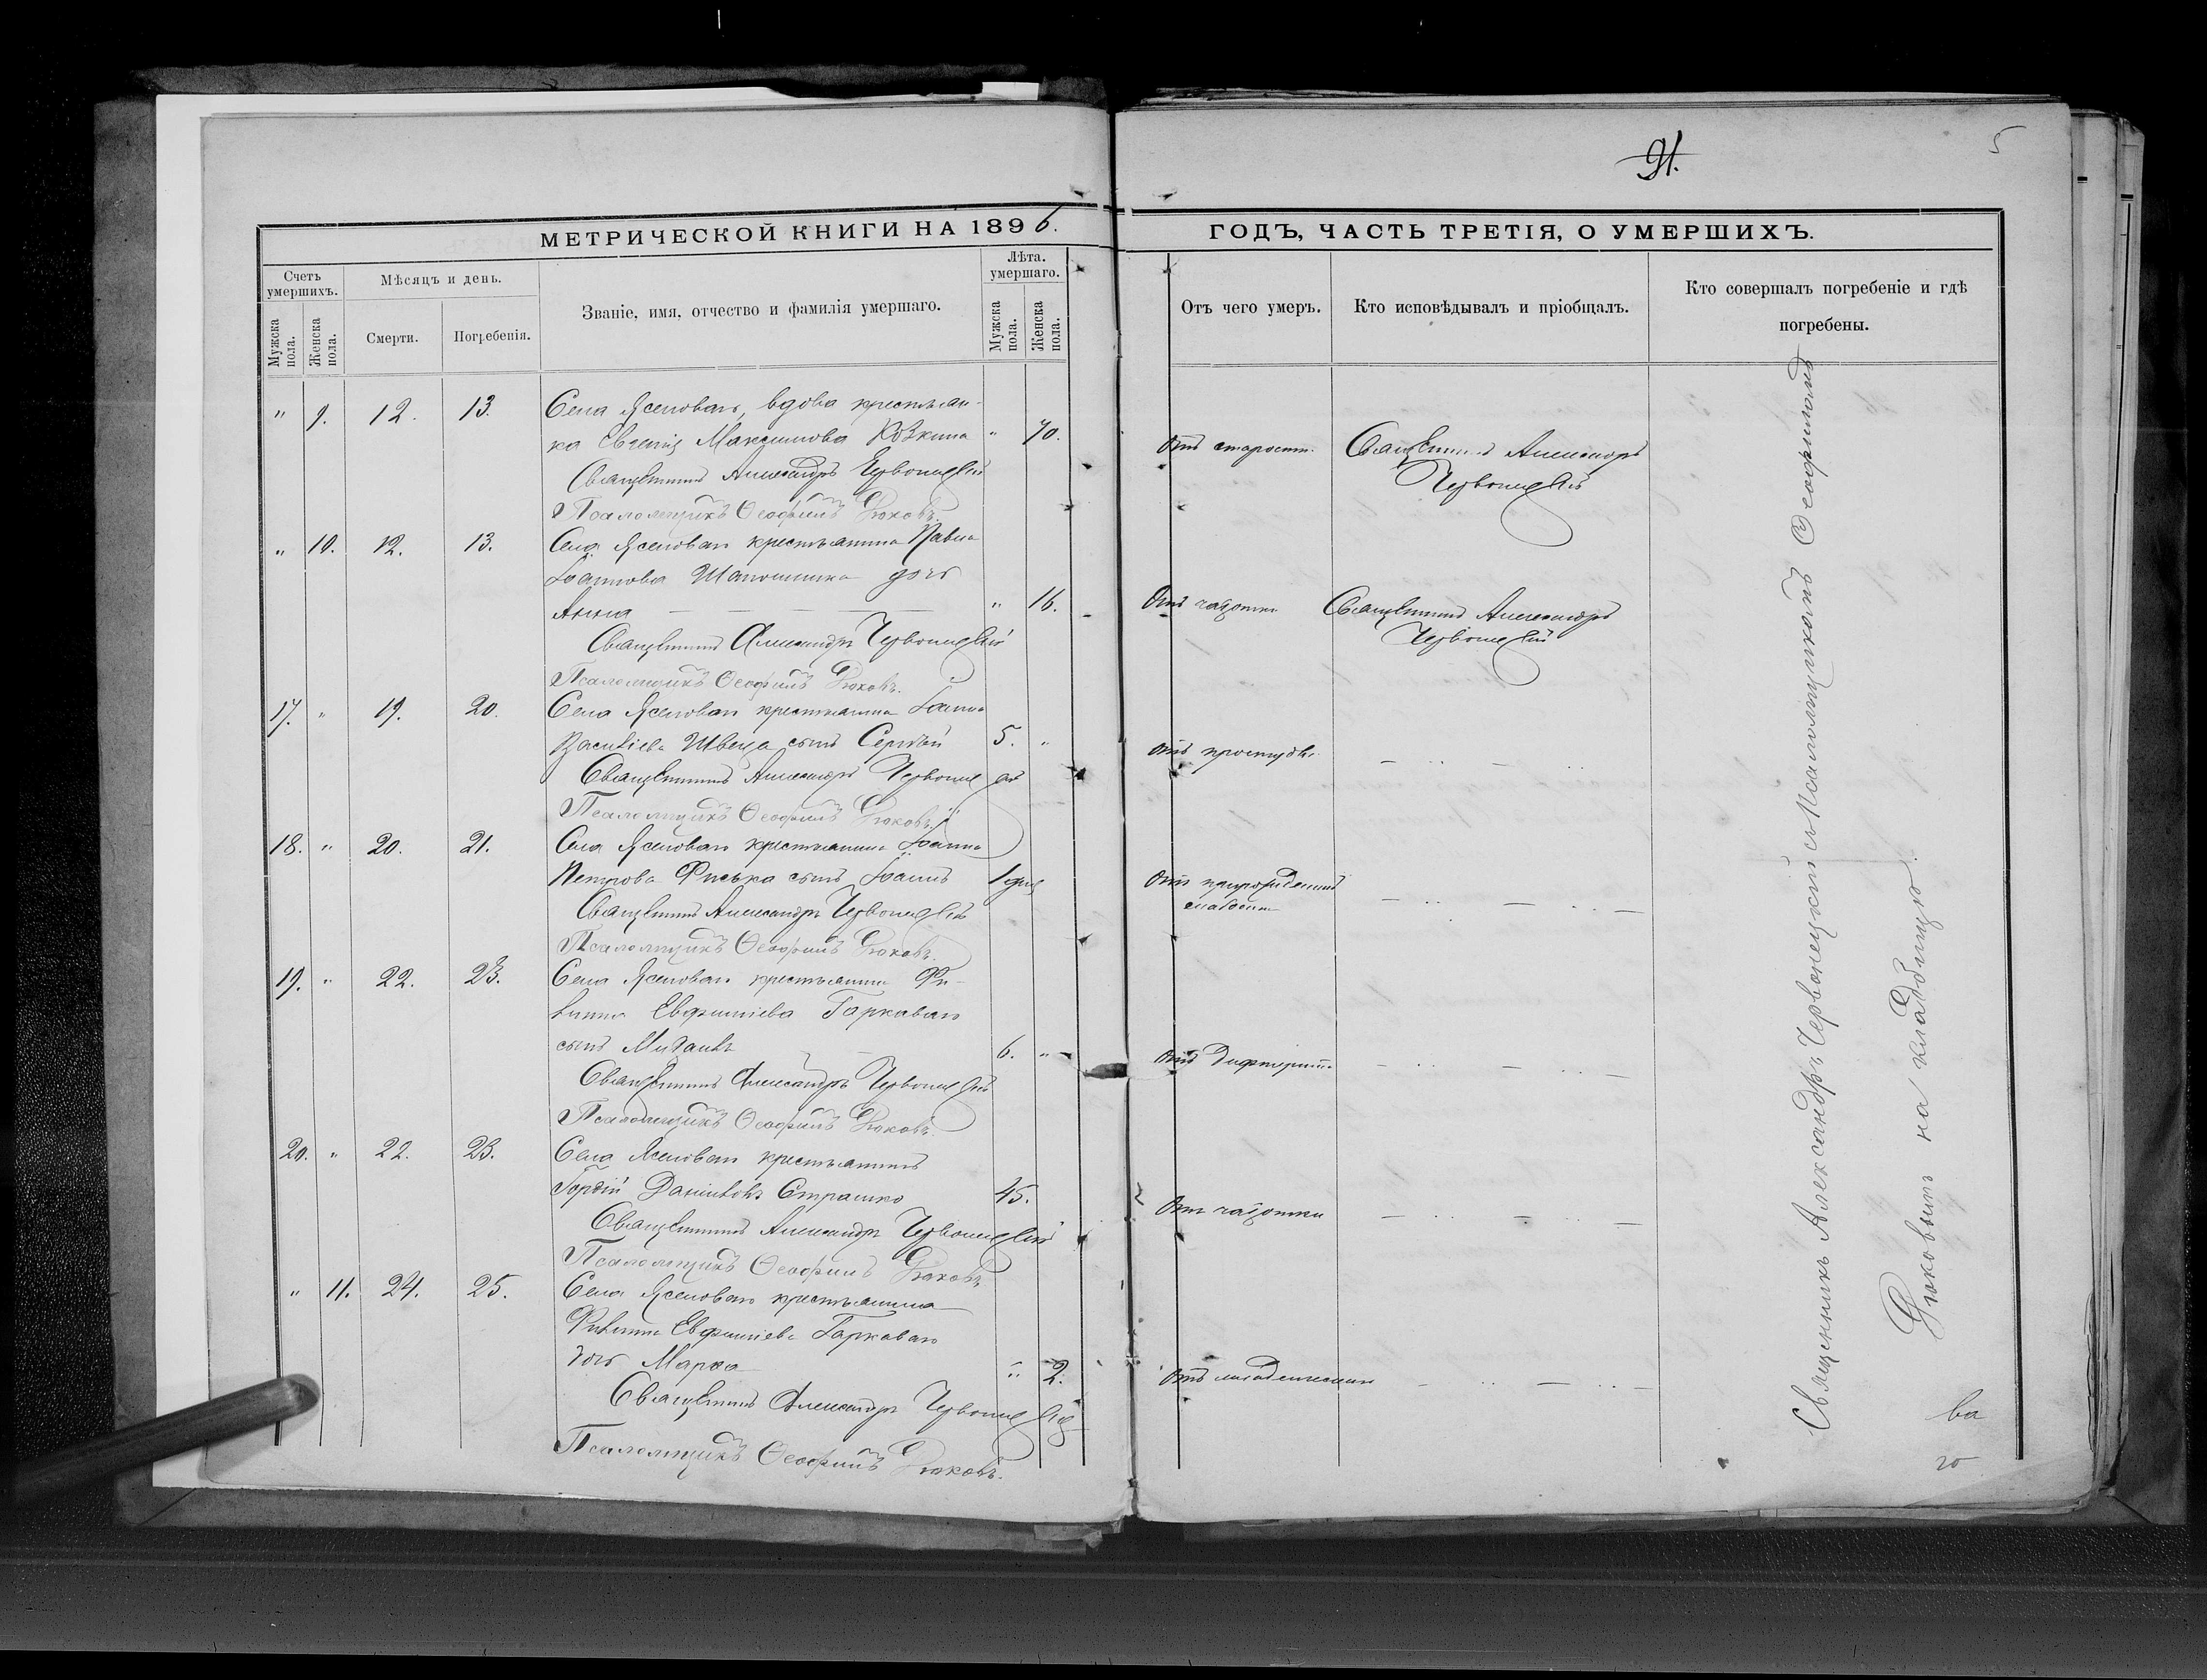 91.
5
МЕТРИЧЕСКОЙ КНИГИ НА 1896.
ГОДЪ, ЧАСТЬ ТРЕТІЯ, О УМЕРШИХЪ.
Счетъ умершихъ.
Мѣсяцъ и день.
Званіе, имя, отчество и фамилія умершаго.
Лѣта. умершаго.
Мужска пола.
Женска пола.
Смерти.
Погребенія.
Мужска пола.
Женска пола.
Отъ чего умеръ.
Кто исповѣдывалъ и пріобщалъ.
Кто совершалъ погребеніе и гдѣ
погребены.
" 9. 12. 13. Села Ясеноваго, вдова крестьян-
ка Максимова " 70. отъ старости. Священникъ Александръ
Червонецкій
Священникъ Александръ Червонецкій
Псаломщикъ Ѳеофилъ Рюховъ.
" 10. 12. 13. Села Ясеноваго крестьянина Павла
Іоаннова дочь
Анна " 16. Отъ чахотки Священникъ Александръ
Червонецкій
Священникъ Александръ Червонецкій
Псаломщикъ Ѳеофилъ
17. " 19. 20. Села Ясеноваго крестьянина Іоанна
Василіева Швеца сынъ Сергѣй 5. " отъ простуды
Священникъ Александръ Червонецкій
Псаломщикъ Ѳеофилъ
18. " 20. 21. Села Ясеноваго крестьянина Іоанна
Петрова сынъ Іоаннъ 1 дня Отъ прирожденной
слабости
Священникъ Александръ Червонецкій
Псаломщикъ Ѳеофилъ
19. " 22. 23. Села Ясеноваго крестьянина Фи-
липпа Евфиміева Гаркаваго
сынъ Михаилъ 6. " отъ дифтерита
Священникъ Александръ Червонецкій
Псаломщикъ Ѳеофилъ
20. " 22. 23. Села Ясеноваго крестьянинъ
Гордій Даніиловъ Страшко 45. Отъ чахотки
Священникъ Александръ Червонецкій
Псаломщикъ Ѳеофилъ
" 11. 24. 25. Села Ясеноваго крестьянина
Филиппа Евфиміева Гаркаваго
дочь Марѳа " 2. Отъ младенческой
Священникъ Александръ Червонецкій
Псаломщикъ Ѳеофилъ
Священникъ Александръ Червонецкій съ Псаломщикомъ Ѳеофиломъ
на кладбищѣ.
ва
го